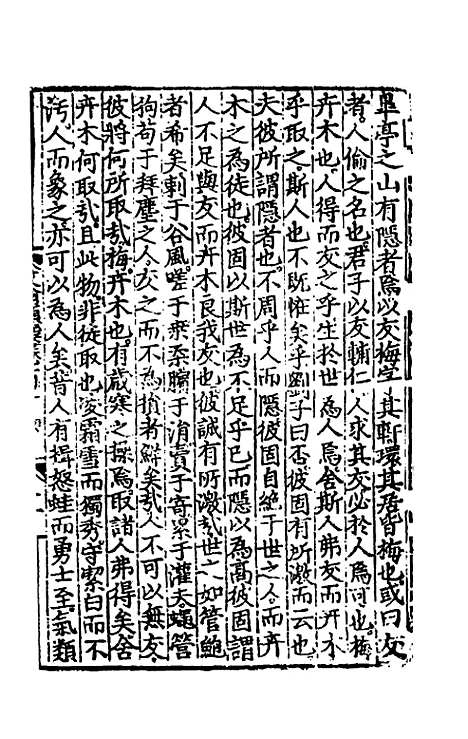 臯亭之山有隱者焉以友梅字其軒環其居皆梅也或曰友
者人倫之名也君子以友輔仁人求其友必於人焉可也梅
卉木也人得而友之乎生於世為人焉舍斯人弗友而卉木
乎取之斯人也不旣怪矣乎劉子曰否彼固有所激而云也
夫彼所謂隱者也不周乎人而隱彼固自絶于世之人而卉
木之為徒也彼固以斯世為不足乎已而隱以為髙彼固謂
人不足與友而卉木良我友也彼誠有所激哉世之如管鮑
者希矣刺于谷風嗟于桑柔臏于涓賣于寄累于灌夫蠅營
狗苟于拜塵之人友之而不為損者鮮矣哉人不可以無友
彼將何所取哉梅卉木也有歲寒之操焉取諸人弗得矣舍
卉木何取哉且此物非徒取也凌霜雪而獨秀守潔白而不
汚人而象之亦可以為人矣昔人有揖怒蛙而勇士至氣類